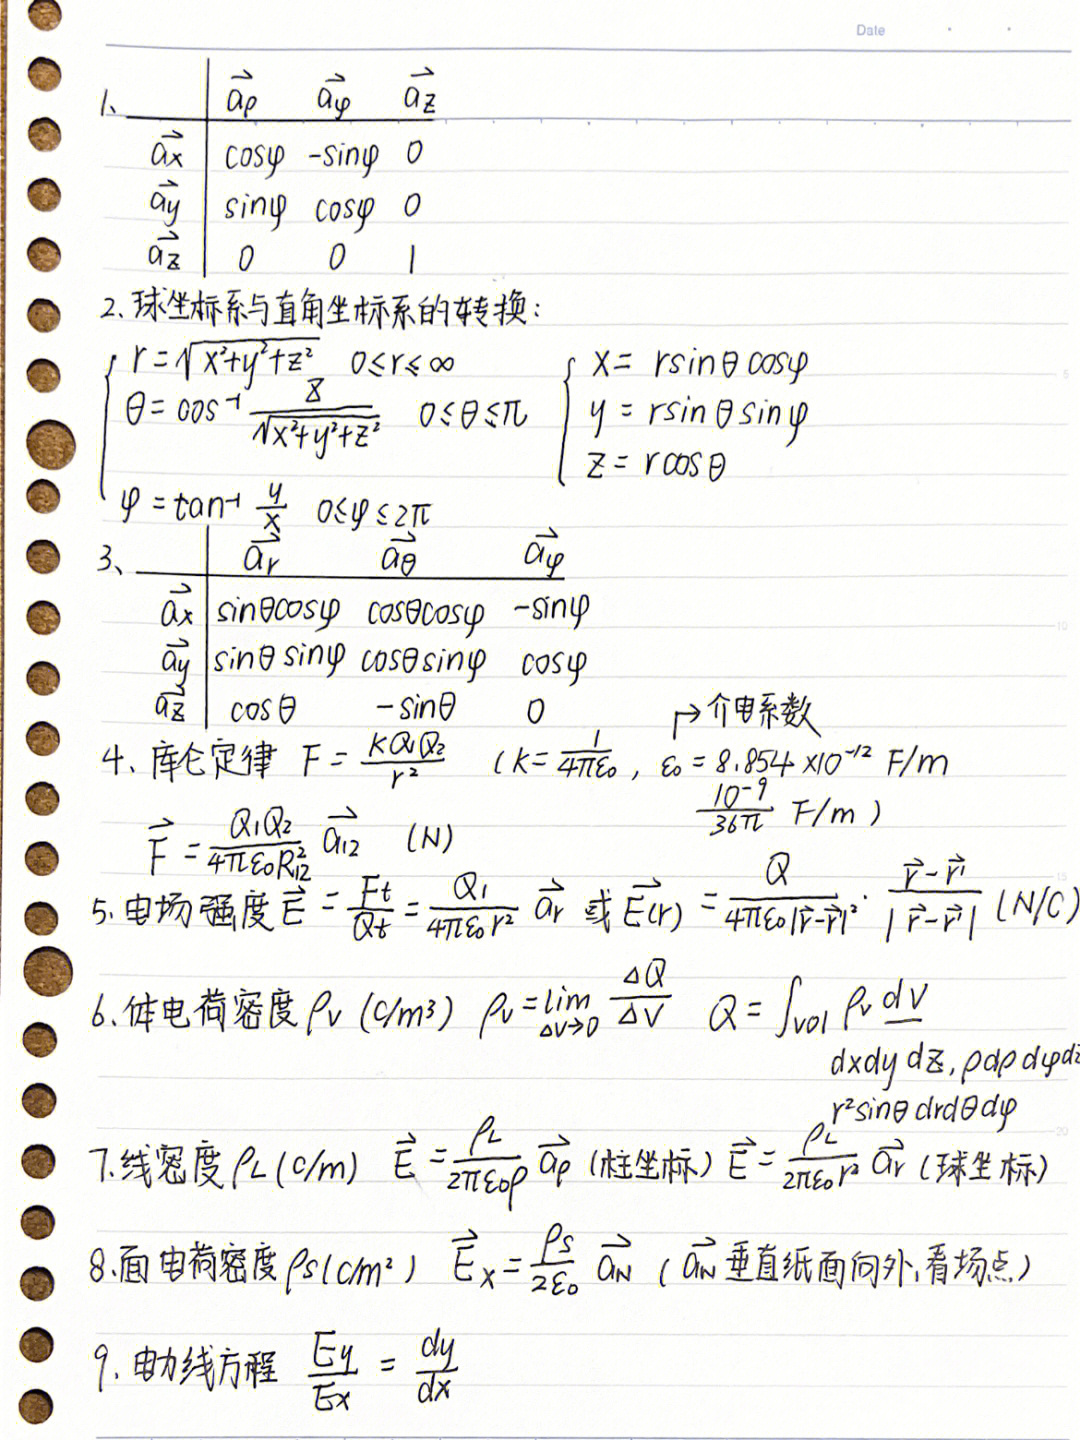 Date
1、 a⃗ρ a⃗φ a⃗z
a⃗x cosφ -sinφ 0
a⃗y sinφ cosφ 0
a⃗z 0 0 1
2、球坐标系与直角坐标系的转换:
r=√(x²+y²+z²) 0≤r≤∞ x= rsinθcosφ
θ=cos⁻¹ z/√(x²+y²+z²) 0≤θ≤π y=rsinθsinφ
z=rcosθ
φ=tan⁻¹ y/x 0≤φ≤2π
3、 a⃗r a⃗θ a⃗φ
a⃗x sinθcosφ cosθcosφ -sinφ
a⃗y sinθsinφ cosθsinφ cosφ
a⃗z cosθ -sinθ 0
↱介电系数
4、库仑定律 F=KQ₁Q₂/r² (k=1/4πε₀, ε₀=8.854×10⁻¹² F/m
10⁻⁹/36π F/m)
F⃗=Q₁Q₂/4πε₀R₁₂² a⃗₁₂ (N)
5、电场强度E⃗=Ft/Qt=Q₁/4πε₀r² a⃗r 或E⃗(r)=Q/4πε₀|r⃗-r⃗'|²·r⃗-r⃗'/|r⃗-r⃗'| (N/C)
6、体电荷密度ρv(C/m³) ρv=lim ΔV→0 ΔQ/ΔV Q=∫vol ρv dV
dxdydz, ρdρdφdz
r²sinθdrdθdφ
7.线密度ρL(c/m) E⃗=ρL/2πε₀ρ a⃗ρ(柱坐标) E⃗=ρL/2πε₀r² a⃗r(球坐标)
8.面电荷密度ρs(c/m²) E⃗x=ρs/2ε₀ a⃗N (a⃗N垂直纸面向外,看场点)
9、电力线方程 Ey/Ex=dy/dx
5
10
15
20